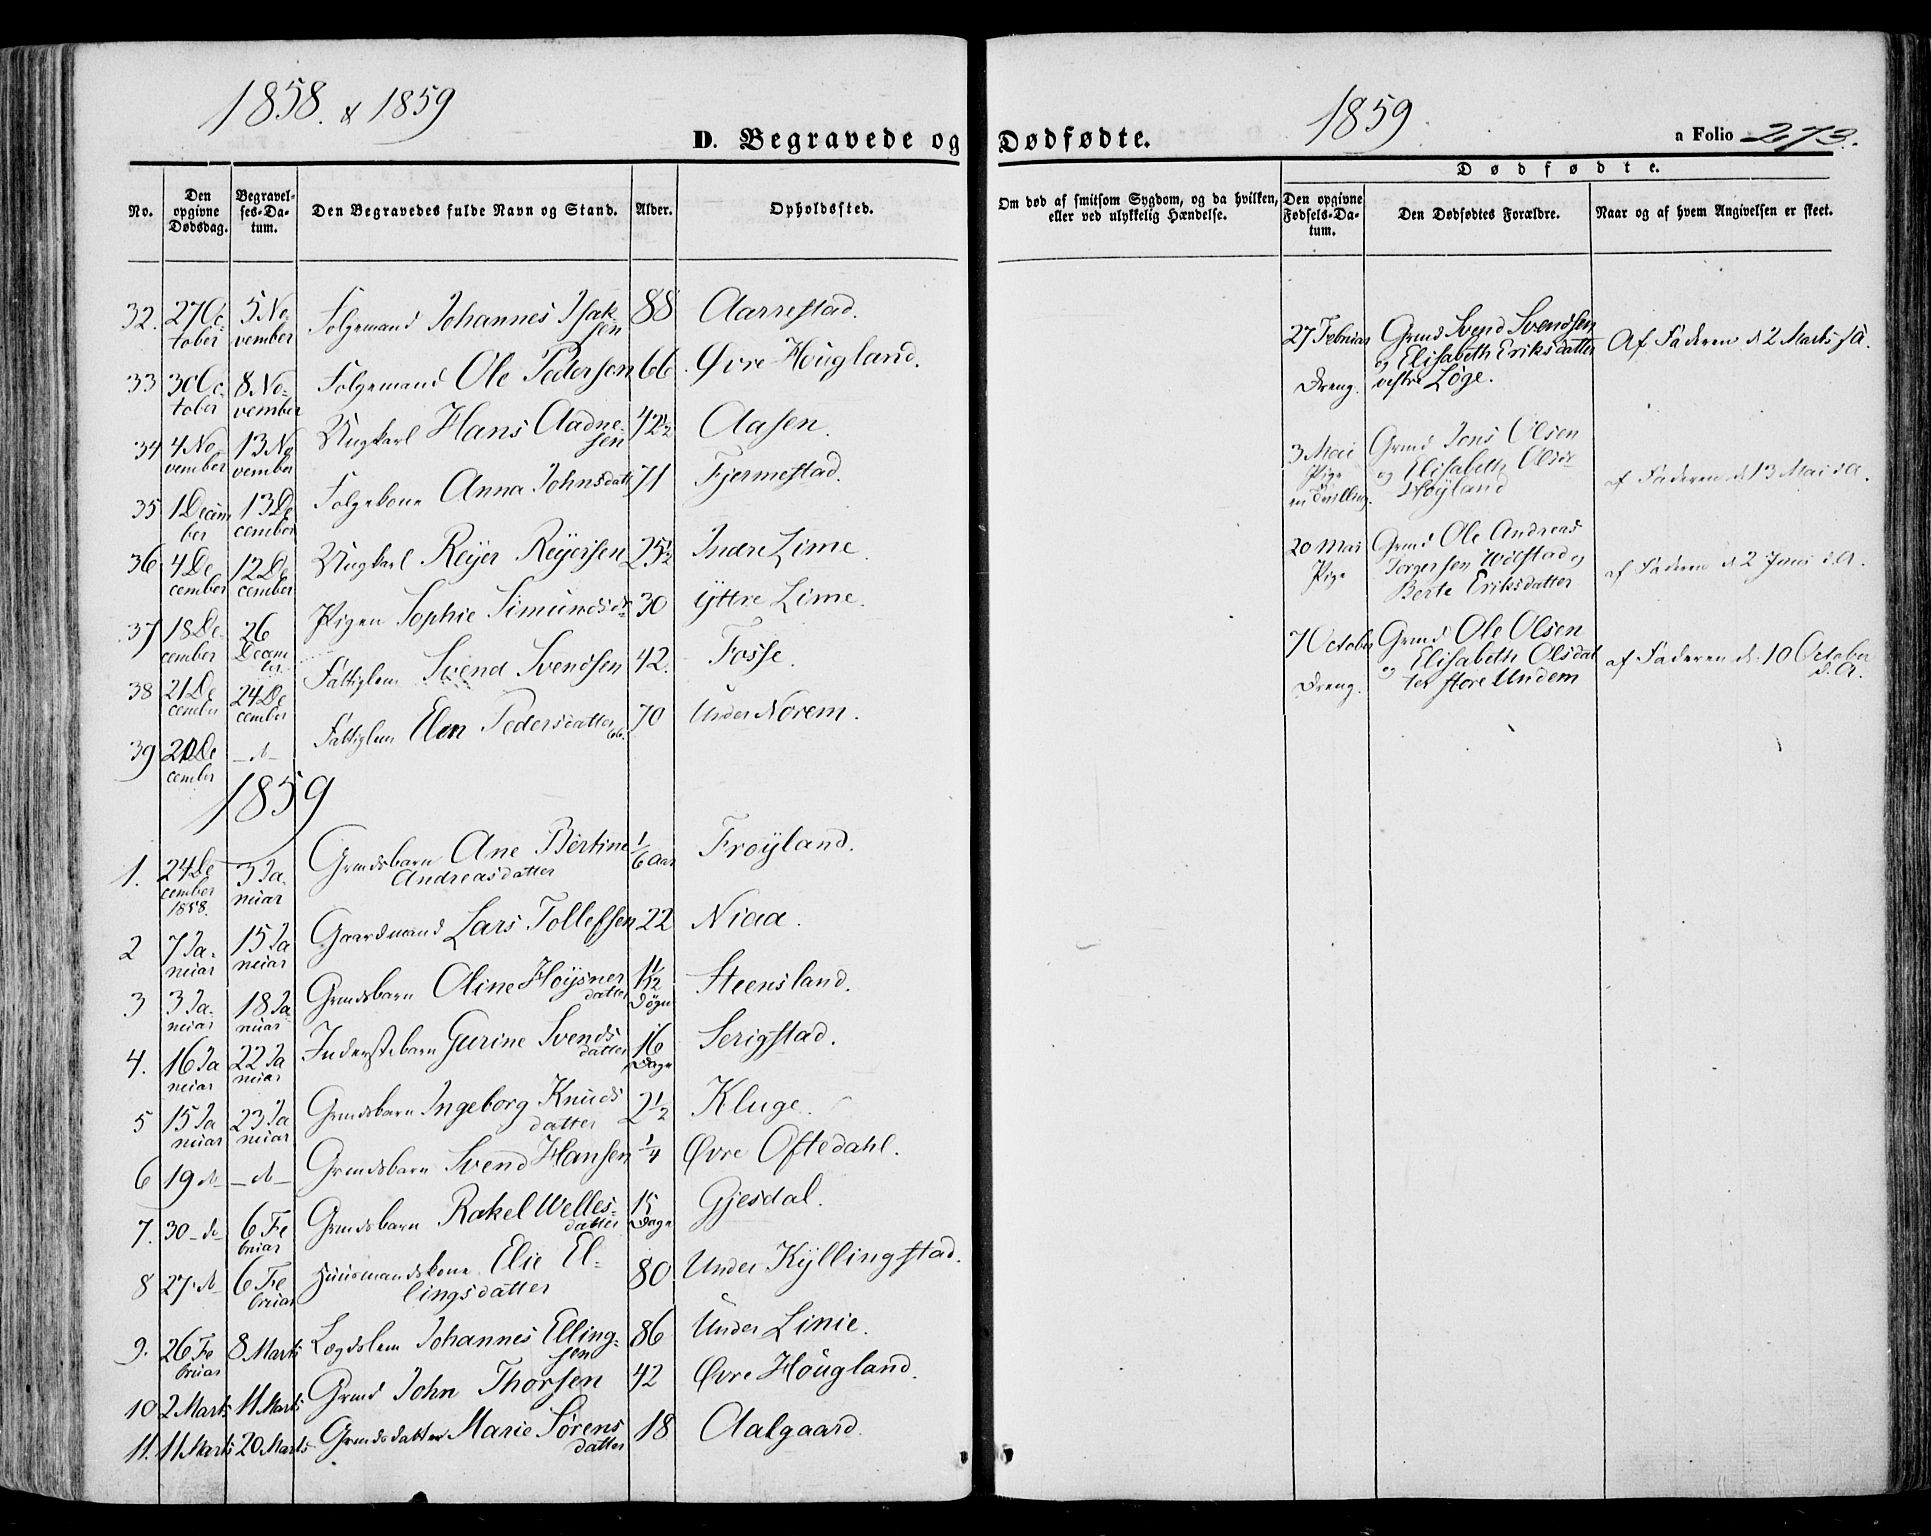 1858. & 1859
D. Begravede og
No.
Den opgivne Dødsdag.
Begravelses-Datum.
Den Begravedes fulde Navn og Stand.
Alder.
Opholdssted.
32. 27 October 5 November Folgemand Johannes Isaksen 88 Aarrestad.
33 30 October 8 November Folgemand Ole Pedersen 66 Øvre Høugland.
34 4 November 13 November Ungkarl Hans Aadnesen 42½ Aasen.
35 1 December 13 December Folgekone Anna Johnsdatt 71 Fjermestad.
36 4 December 12 December Ungkarl Reijer Reijersen 25½ Indre Lime.
37 18 December 26 December Pigen Sophie Simundsd 30 Yttre Lime.
38 21 December 24 December Fattiglem Svend Svendsen 42. Fosse.
39 20 December - d - Fattiglem Elen Pedersdatter 70 Under Norem.
1859
1. 24 December 1858. 3 Januar Grmdsbarn Ane Bertine Andreasdatter 1/6 Aar Frøyland.
2 7 Januar 15 Januar Gaardmand Lars Tollefsen 22 Niaa.
3 3 Januar 18 Januar Grmdsbarn Oline Høysnerdatter 1½ Døgn Steensland.
4. 16 Januar 22 Januar Inderstebarn Gurine Svendsdatter 16 Dage Serigstad.
5 15 Januar 23 Januar Grmdsbarn Ingeborg Knudsdatter 2½ Kluge.
6 19 d - d - Grmdsbarn Svend Hansen ¼ Øvre Oftedahl.
7. 30 - d - 6 Februar Grmdsbarn Rakel Wellesdatter 15 Dage Gjesdal.
8 27 d 6 Februar Huusmandskone Elie Ellingsdatter 80 Under Kyllingstad.
9. 26 Februar 8 Marts Lægdslem Johannes Ellingsen 86 Under Linie.
10 2 Marts 11 Marts Grmd John Thorsen 42 Øvre Høugland.
11. 11 Marts 20 Marts Grmdsdatter Marie Sørensdatter 18 Aalgaard.
1859
Dødfødte.
a Folio 273.
Om død af smitsom Sygdom, og da hvilken, eller ved ulykkelig Hændelse.
Dødfødte.
Den opgivne Fødsels-Datum.
Den Dødfødtes Forældre.
Naar og af hvem Angivelsen er skeet.
27 Februar Dreng. Grmd Svend Svendsen og Elisabeth Eriksdatter vestre Løge. Af Faderen d 2 Marts s A.
3 Mai Pige en Tvilling. Grmd Jons Olsen og Elisabeth Olsd Høyland af Faderen d 13 Mai s A.
20 Mai Pige Grmd Ole Andreas Torgersen Wølstad og Berte Eriksdatter af Faderen d 2 Juni s A.
7 October Dreng. Grmd Ole Olsen og Elisabeth Olsdatter store Undem af Faderen d. 10 October s. A.